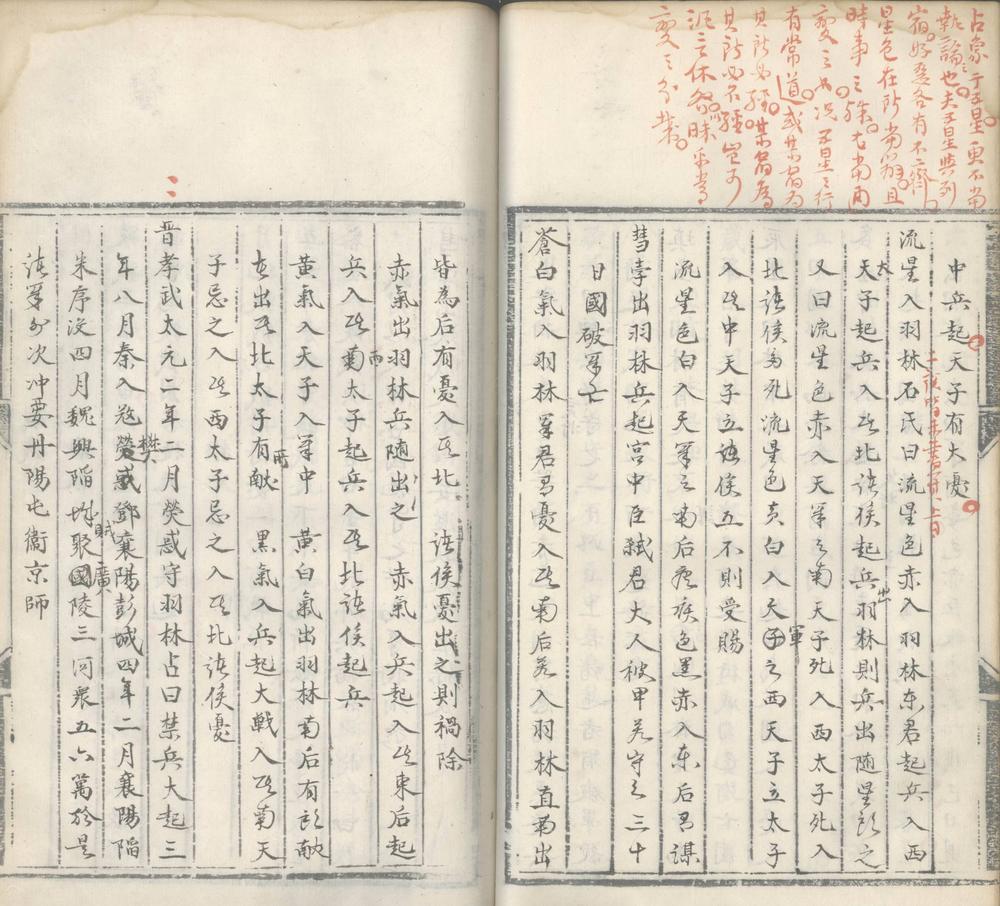 占象于五星更不當
執論也夫五星與列
宿好惡各有不齊
星色在所當辨且
時事之驗尤當用
變之況五星之行
有常道或某宿為
其所必經某宿為
其所必不經豈可
泥言休咎昧乎常
變之分哉
中兵起天子有大憂
流星入羽林石氏曰流星色赤入羽林东君起兵入西
天子起兵入其北諸侯起兵出羽林則兵出随星所之
又曰流星色赤入天軍之南天子死入西太子死入
北諸侯多死流星色黄白入天軍之西天子立太子
入其中天子立諸侯五不則受賜
流星色白入天軍之南后疾疾色黑赤入东后君謀
彗孛出羽林兵起宫中臣弑君大人被甲若守之三十
日國破軍亡
蒼白氣入羽林軍君有憂入其南后若入羽林直南出
皆為后有憂入其北諸侯憂出之則禍除
赤氣出羽林兵随出之赤氣入兵起入其東后起
兵入其南太子起兵入其北諸侯起兵
黄氣入天子入軍中 黄白氣出羽林南后有所献
在出其北太子有所献 黑氣入兵起大戦入其南天
子忌之入其西太子忌之入其北諸侯憂
晋孝武太元二年二月熒惑守羽林占曰禁兵大起三
年八月秦人寇樊鄧襄陽彭城四年二月襄陽陷
朱序没四月魏興陷賊聚廣陵三河衆五六萬於是
諸軍分次冲要丹陽屯衛京師